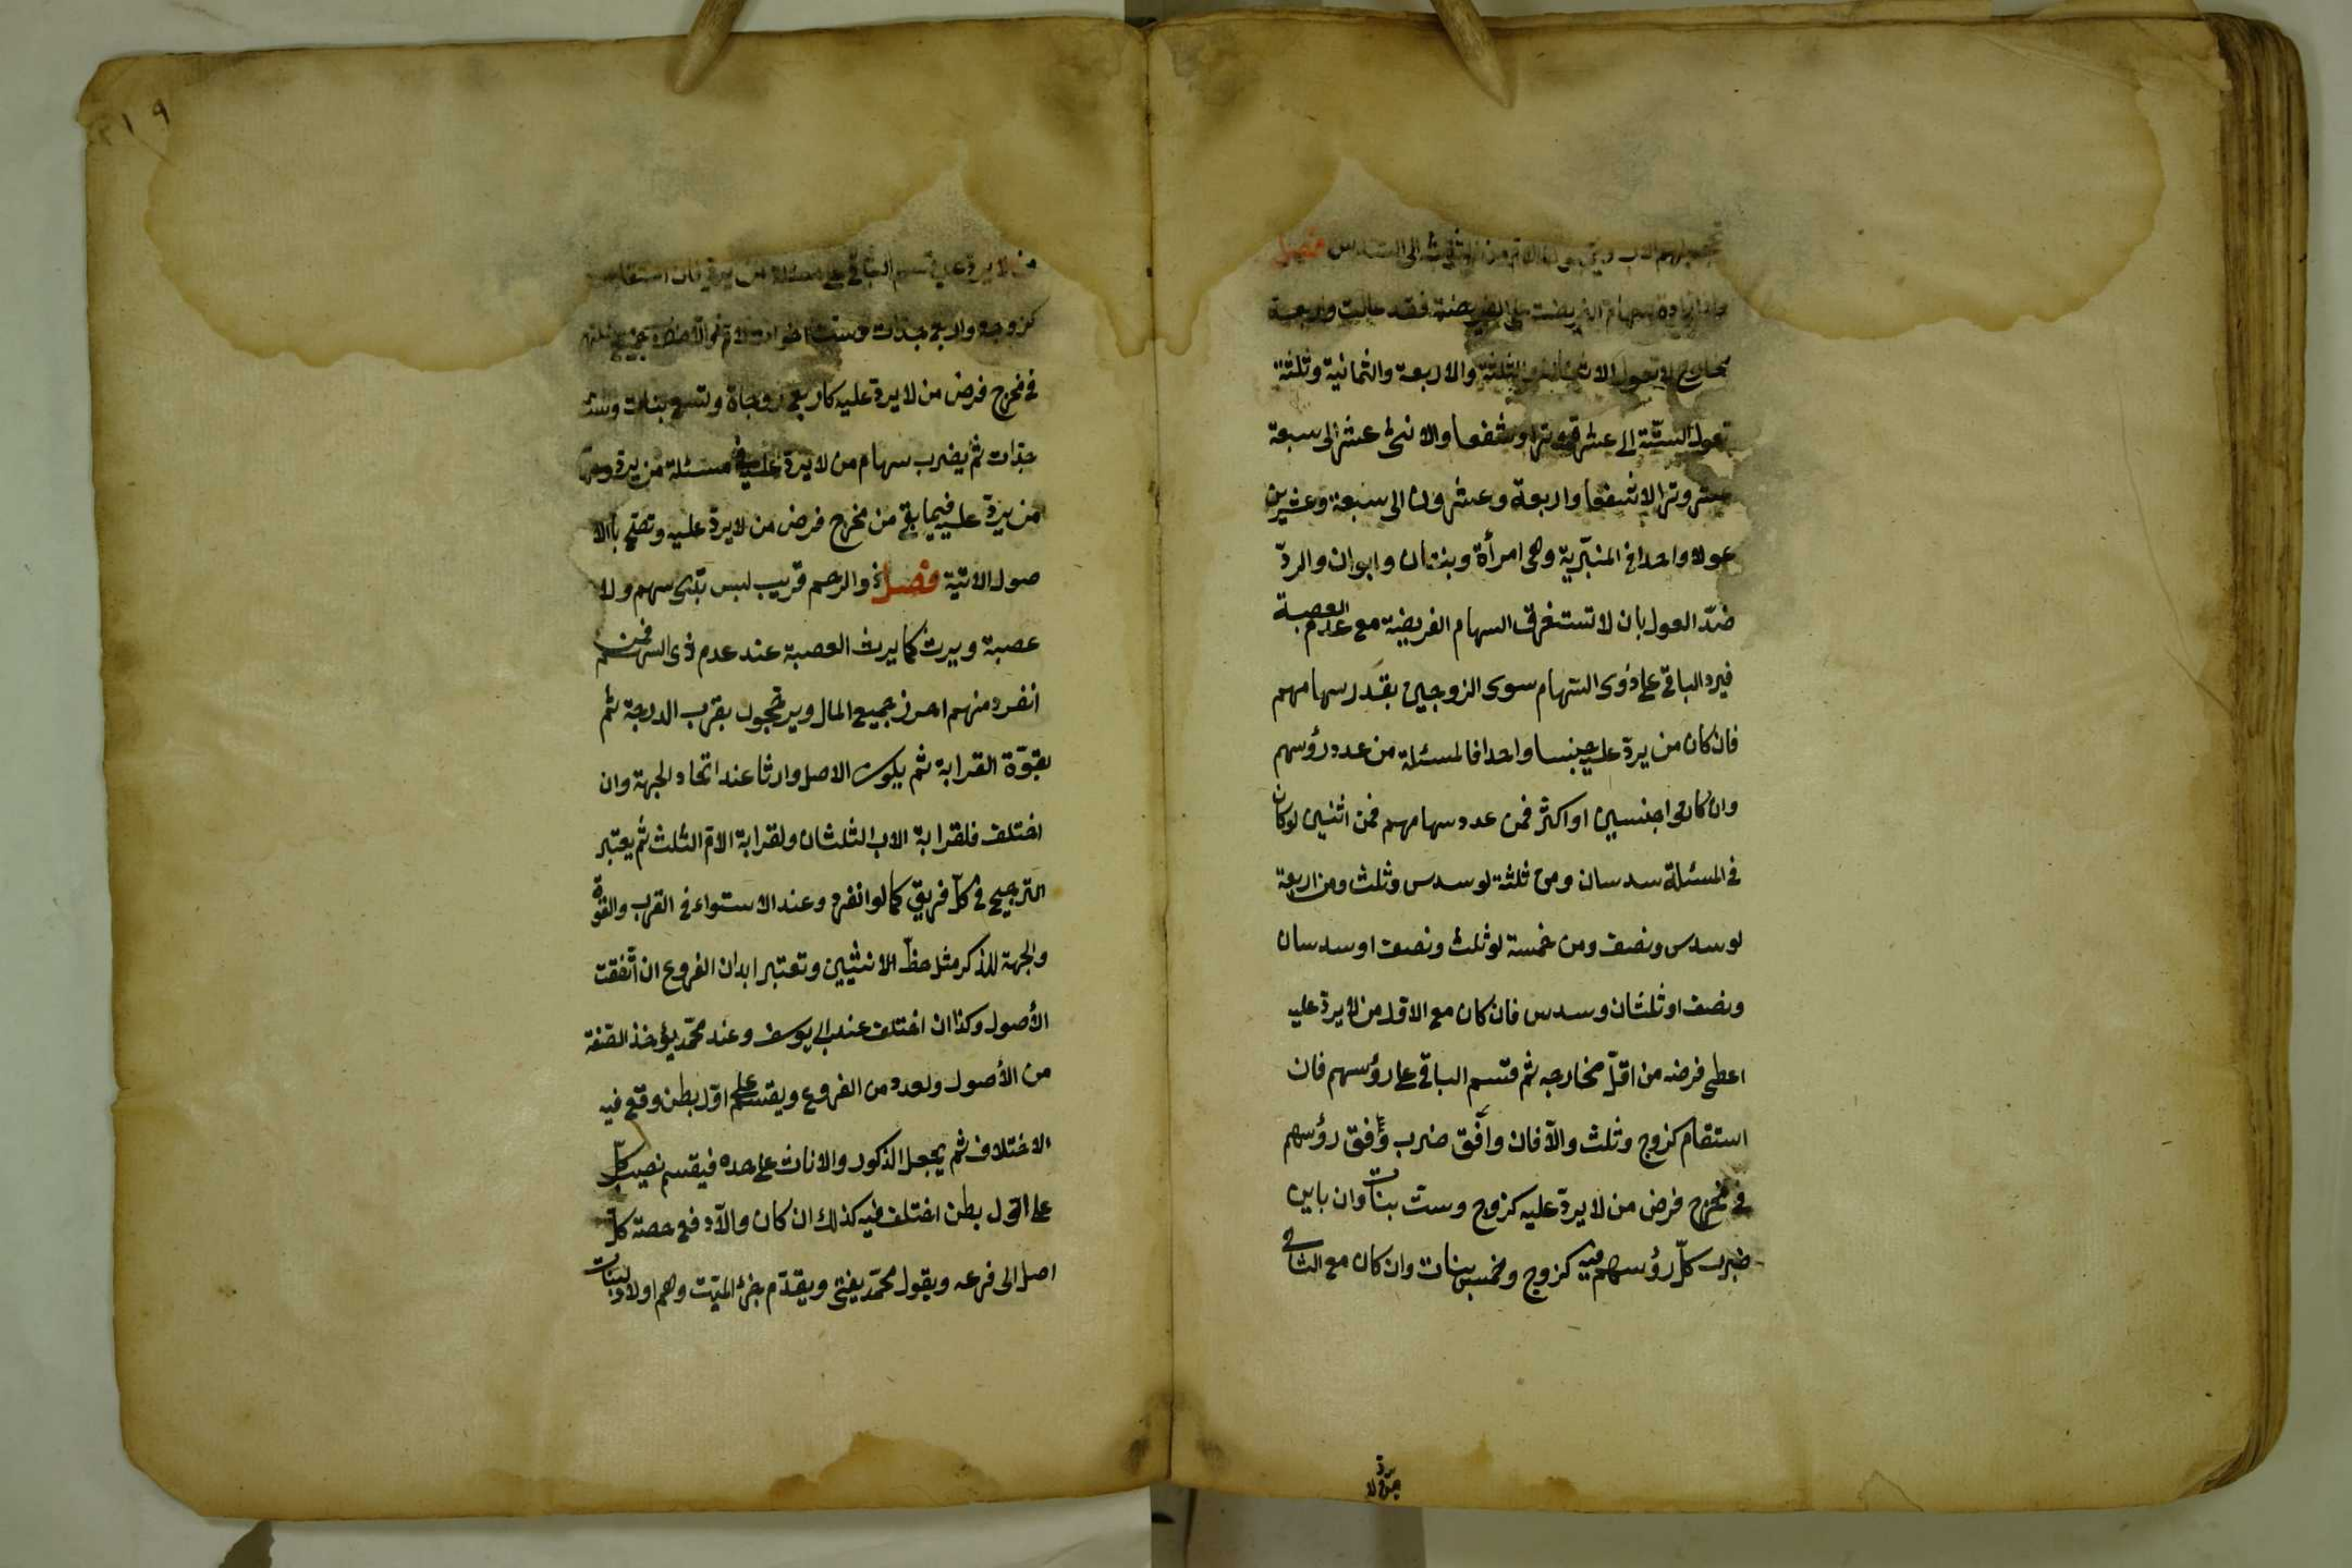 يحجبهم الاب ويحجبون الام من الثلث الى السدس فصل
واذا زادة سهام الفريضة على الفريضة فقد عالت واربعة
مخارج لا تعول الاثنان والثلثة والاربعة والثمانية وثلثة
تعول الستة الى عشرة وترا وشفعا والاثنى عشر الى سبعة
عشر وترا لا شفعا واربعة وعشرون الى سبعة وعشرين
عولا واحدا في المنبرية وهى امرأة وبنتان وابوان والردّ
ضدّ العول بان لا تستغرق السهام الفريضة مع عدم العصبة
فيرد الباقي على ذوى السهام سوى الزوجين بقدر سهامهم
فان كان من يردّ عليه جنسا واحدا فالمسئلة من عدد رؤسهم
وان كان جنسين او اكثر فمن عدد سهامهم فمن اثنين لو كان
في المسئلة سدسان ومن ثلثة لو سدس وثلث ومن اربعة
لو سدس ونصف ومن خمسة لو ثلث ونصف او سدسان
ونصف او ثلثان وسدس فان كان مع الاول من لا يردّ عليه
اعطى فرضه من اقلّ مخارجه ثم قسم الباقي على رؤسهم فان
استقام كزوج وثلث والّا فان وافق ضرب وفق رؤسهم
في مخرج فرض من لا يردّ عليه كزوج وست بنات وان باين
ضرب كلّ رؤسهم فيه كزوج وخمس بنات وان كان مع الثاني
٢١٩
من لا يردّ عليه قسم الباقي على مسئلة من يردّ فان استقام
كزوجة واربع جدات وست اخوات لام والّا ضرب جميع مسئلة
في مخرج فرض من لا يردّ عليه كاربع زوجاة وتسع بنات وست
جدات ثم يضرب سهام من لا يردّ عليه في مسئلة من يردّ وسهام
من يردّ عليه فيما بقى من مخرج فرض من لا يردّ عليه وتصح بالا
صول الاتية فصل ذو الرحم قريب ليس بذى سهم ولا
عصبة ويرث كما يرث العصبة عند عدم ذى السهم فمن
انفرد منهم احرز جميع المال ويرجحون بقرب الدرجة ثم
بقوّة القرابة ثم يكون الاصل وارثا عند اتحاد الجهة وان
اختلف فلقرابة الاب الثلثان ولقرابة الام الثلث ثم يعتبر
الترجيح في كلّ فريق كما لو انفرد وعند الاستواء في القرب والقوة
والجهة للذكر مثل حظّ الانثيين وتعتبر ابدان الفروع ان اتّفقت
الأصول وكذا ان اختلف عند ابى يوسف وعند محمّد يؤخذ الصفة
من الأصول ولعدد من الفروع ويقسم على اوّل بطن وقع فيه
الاختلاف ثم يجعل الذكور والاناث على حده فيقسم نصيب كلّ
على اوّل بطن اختلف فيه كذلك ان كان والّا دفع حصة كلّ
اصل الى فرعه وبقول محمّد يفتى ويقدّم جزئ الميّت وهم اولاد البنات